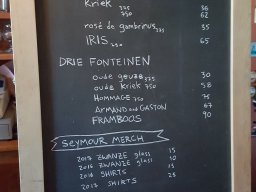 Kriek 375 36
750 62
rosé de gambrinus 375 35
IRIS 750 65
DRIE FONTEINEN
oude geuze 375 30
oude Kriek 750 58
Hommage 750 75
ARMAND and GASTON 67
FRAMBOOS 90
SEYMOUR MERCH
2017 ZWANZE glass 15
2016 ZWANZE glass 10
2016 SHIRTS 15
2017 SHIRTS 25